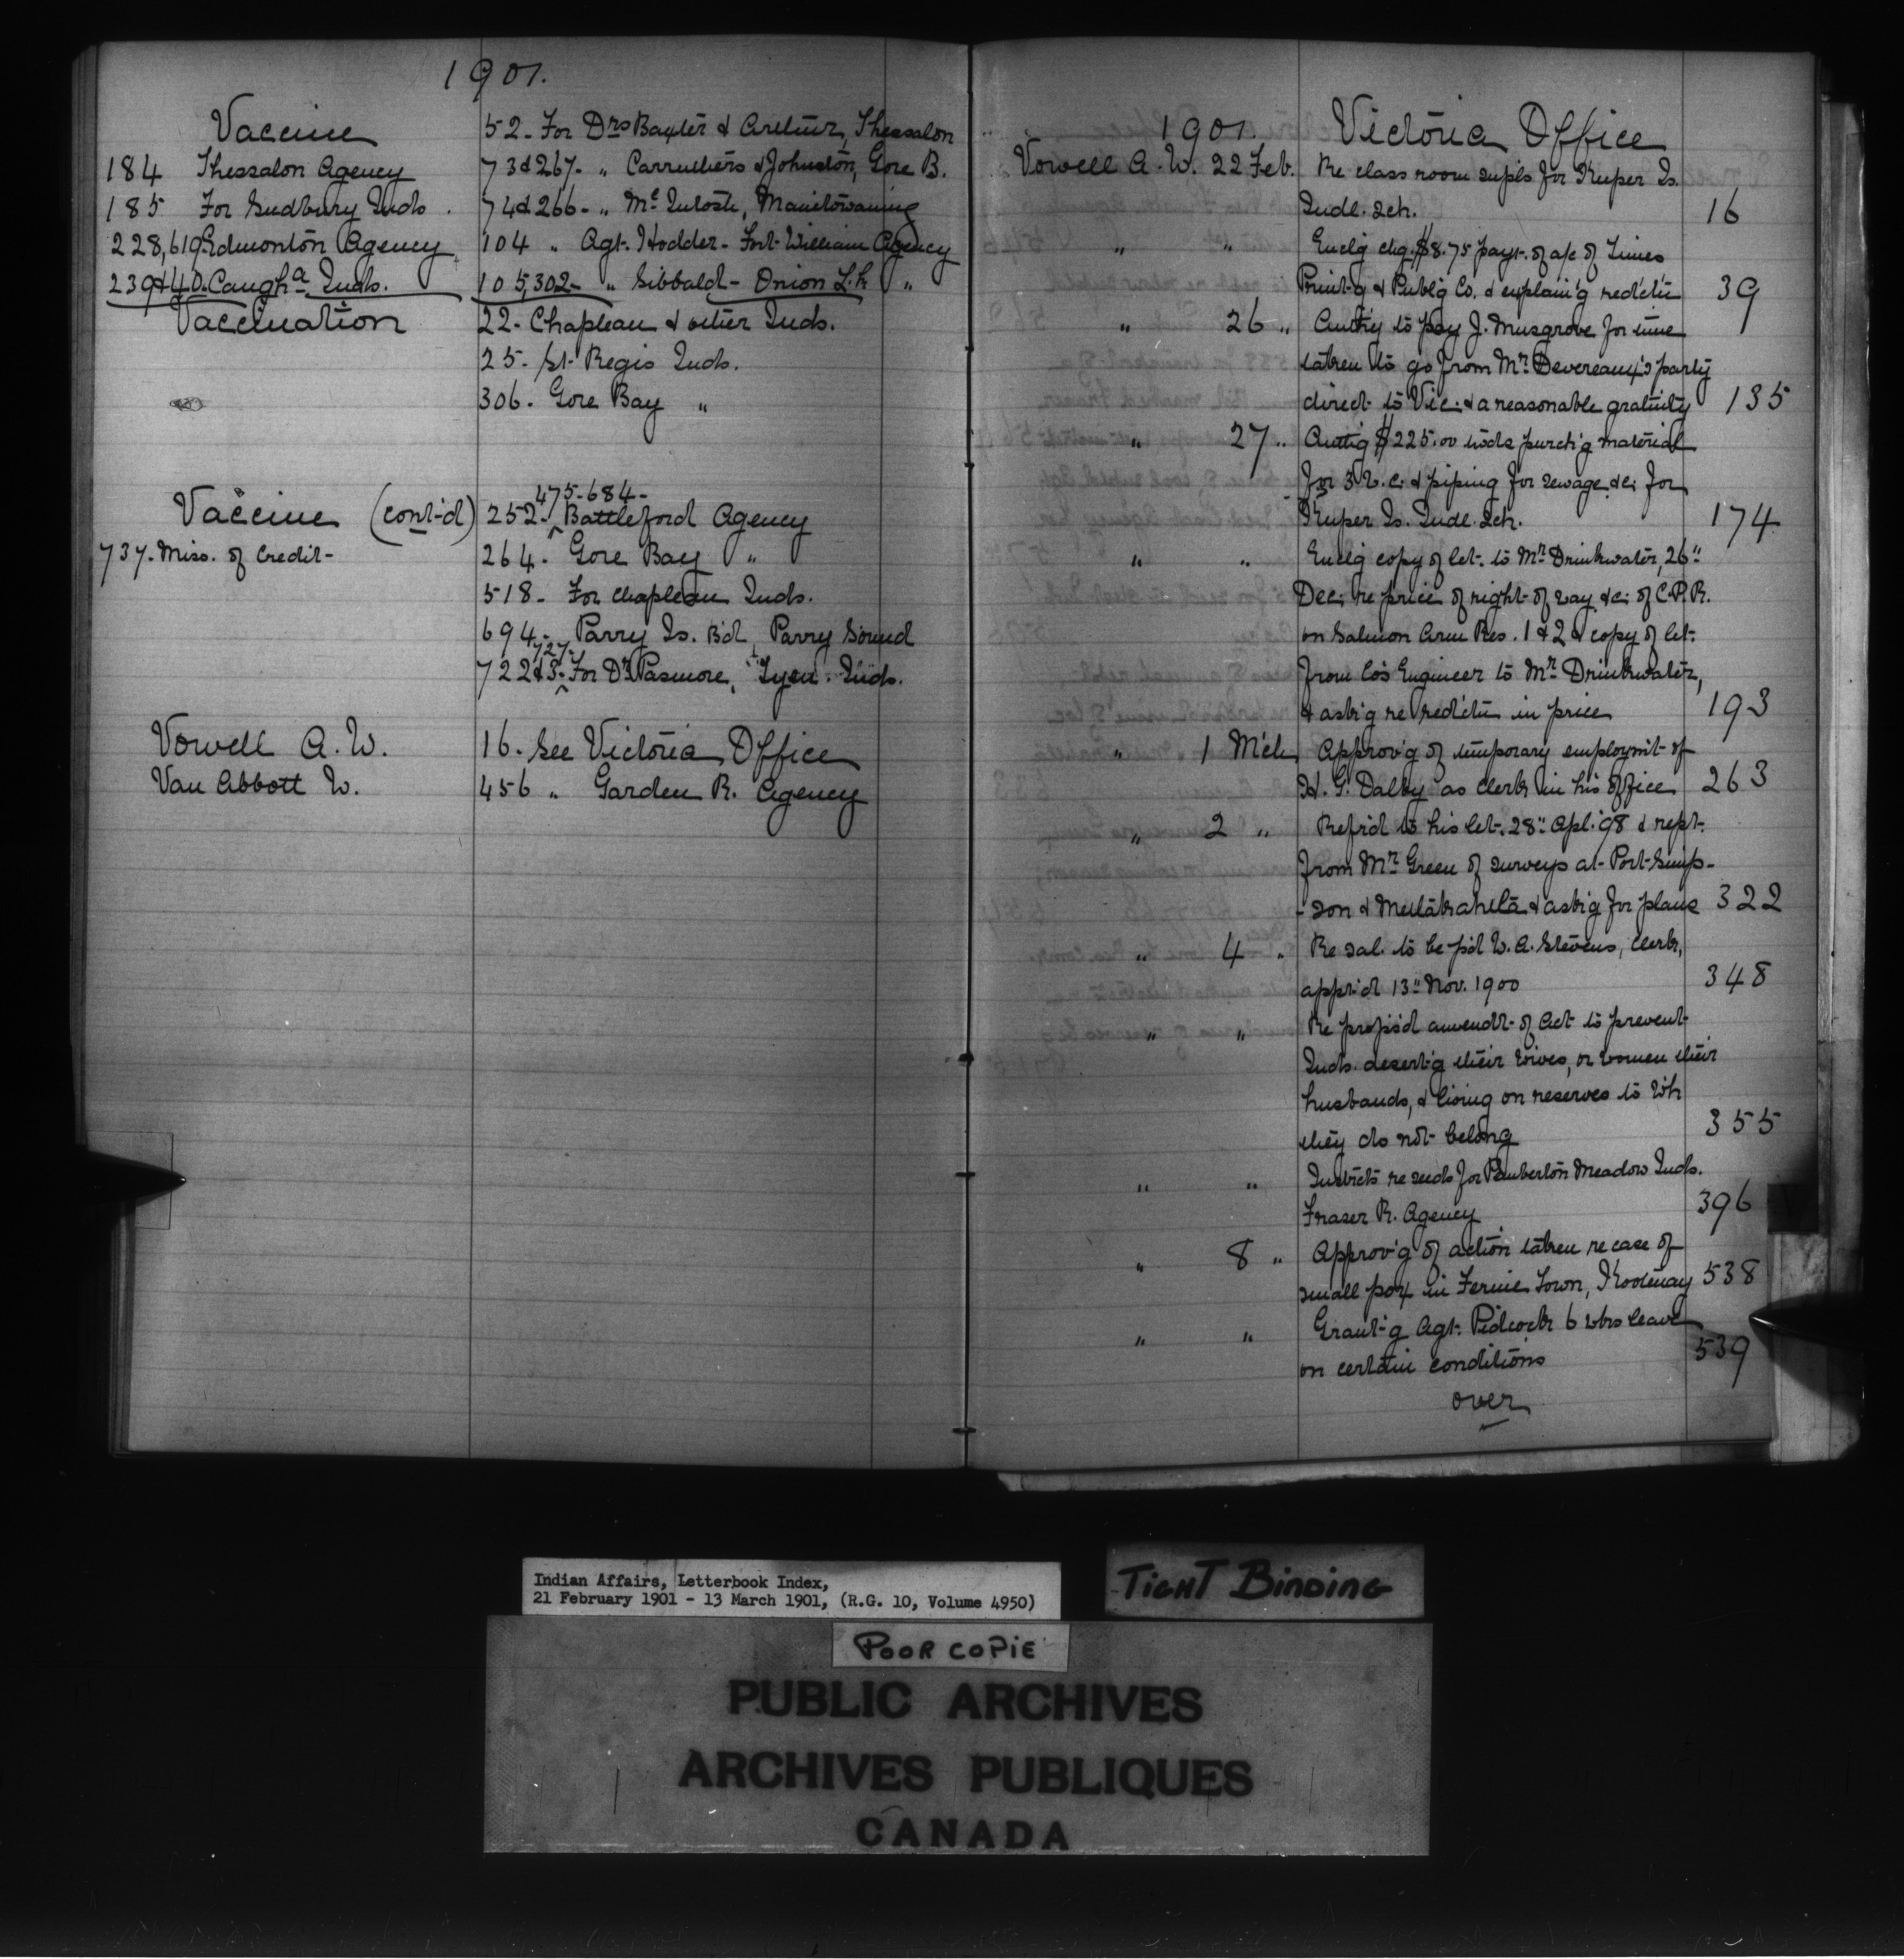 1901.
Vaccine
184 Thessalon Agency
185 For Sudbury Inds.
228,619 Edmonton Agency
239&40. Caugha Inds.
Vaccination
52- For Drs Baxter & Arthur, Thessalon
73&267- " Carruthers & Johnston, Gore B.
74&266- " McIntosh, Manitowaning
104 " Agt. Hodder - Fort William Agency
105,302- " Sibbald - Onion L.k "
22- Chapleau & other Inds.
25- St. Regis Inds.
306- Gore Bay "
Vaccine (cont-d)
737- Miss. of Credit-
475-684-
252- Battleford Agency
264- Gore Bay "
518- For Chapleau Inds.
694- Parry Is. B'd, Parry Sound
727-
722&3- For Dr Pasmore, Tyen. Inds.
Vowell A. W. 16. See Victoria Office
Van Abbott W. 456 " Garden R. Agency
1901. Victoria Office
Vowell A. W. 22 Feb. Re class room supls for Kuper Is.
Indl. Sch. 16
" " Encl'g chq. $8.75 payt. of a/c of Times
Print-g & Publ'g Co. & explain'g red'ct'n 39
" 26 " Auth'g to pay J. Musgrove for time
taken to go from Mr. Devereaux's party
direct to Vic. & a reasonable gratuity 135
" 27 " Auth'g $225.00 tods purch'g material
for 3 W.C. & piping for sewage &c. for
Kuper Is. Indl. Sch. 174
" " Encl'g copy of let. to Mr. Drinkwater, 26"
Dec. re price of right-of way &c. of C.P.R.
on Salmon Arm Res. 1 & 2 & copy of let.
from Co's Engineer to Mr. Drinkwater,
& ask'g re red'ct'n in price 193
" 1 Mch Approv'g of temporary employm't of
H. G. Dalby as clerk in his office 263
" 2 " Refr'd to his let. 28" Apl. '98 & rept.
from Mr. Green of surveys at Port Simp-
-son & Metlakahtla & ask'g for plans 322
" 4 " Re sal. to be p'd W. A. Stevens, clerk,
appt'd 13" Nov. 1900 348
" " Re prop's'd amendt. of Act to prevent
Inds. desert'g their wives, or women their
husbands, & living on reserves to wh
they do not belong 355
" " Instructs re seeds for Pemberton Meadow Inds.
Fraser R. Agency 396
" 8 " Approv'g of action taken re case of
small pox in Fernie Town, Kootenay 538
" " Grant'g Agt. Pidcock 6 wks leave
on certain conditions 539
over
Indian Affairs, Letterbook Index,
21 February 1901 - 13 March 1901, (R.G. 10, Volume 4950)
TIGHT BINDING
POOR COPIE
PUBLIC ARCHIVES
ARCHIVES PUBLIQUES
CANADA